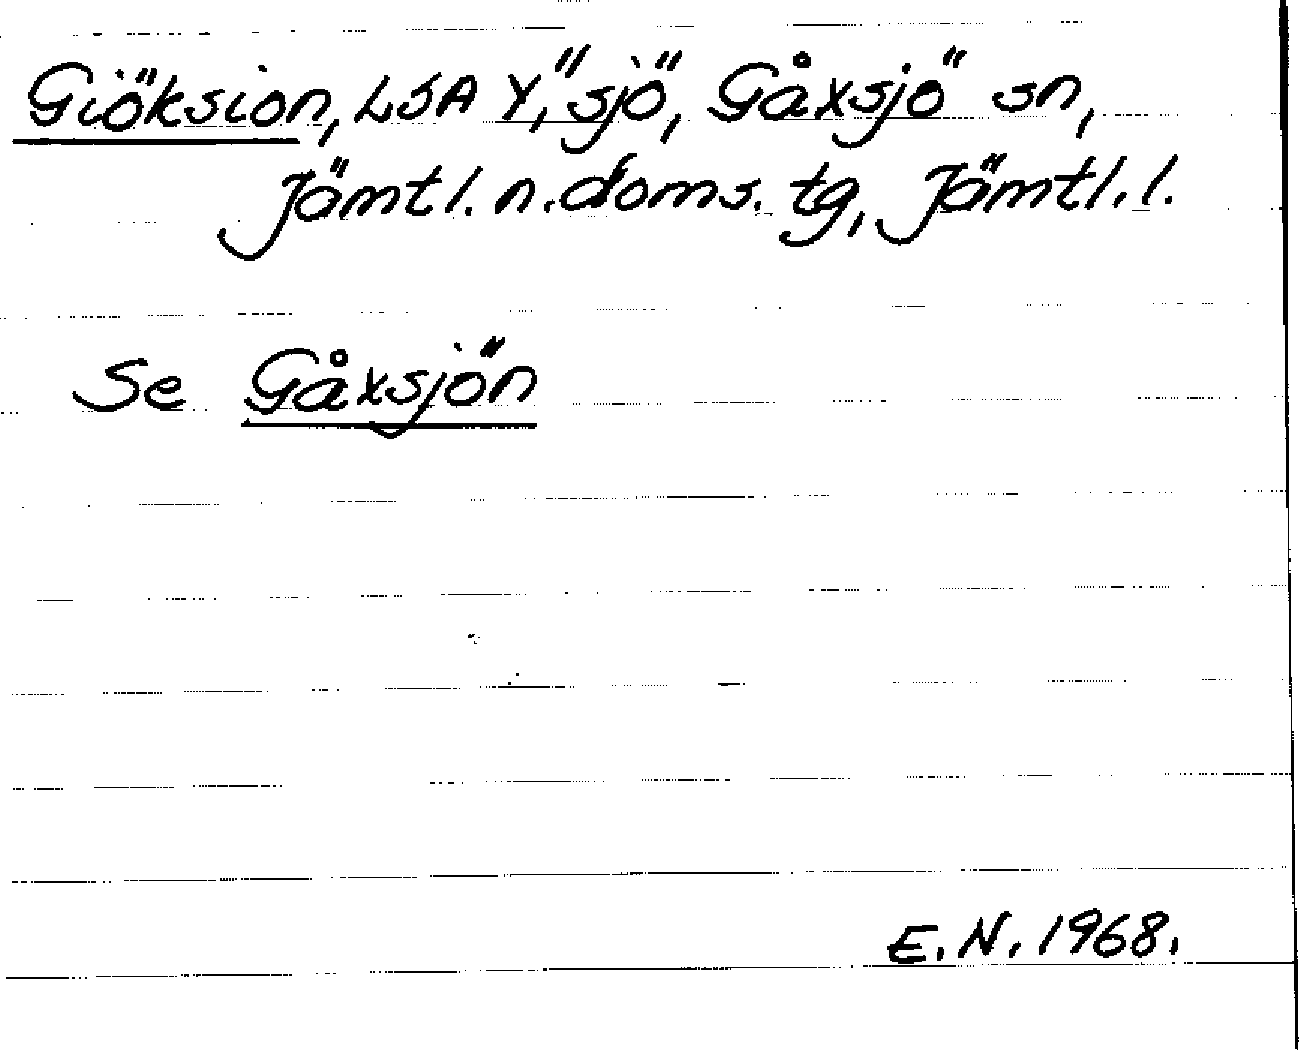 Giöksion, LSA Y, "sjö", Gåxsjö sn,
Jämtl. n. doms. tg, Jämtl. l.
Se Gåxsjön
E. N. 1968.